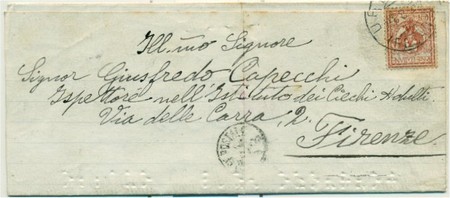 Ill.mo Signore
Signor Giusfredo Capecchi
Ispettore nell'Istituto dei Ciechi Adulti
Via delle Carra, 2.
Firenze